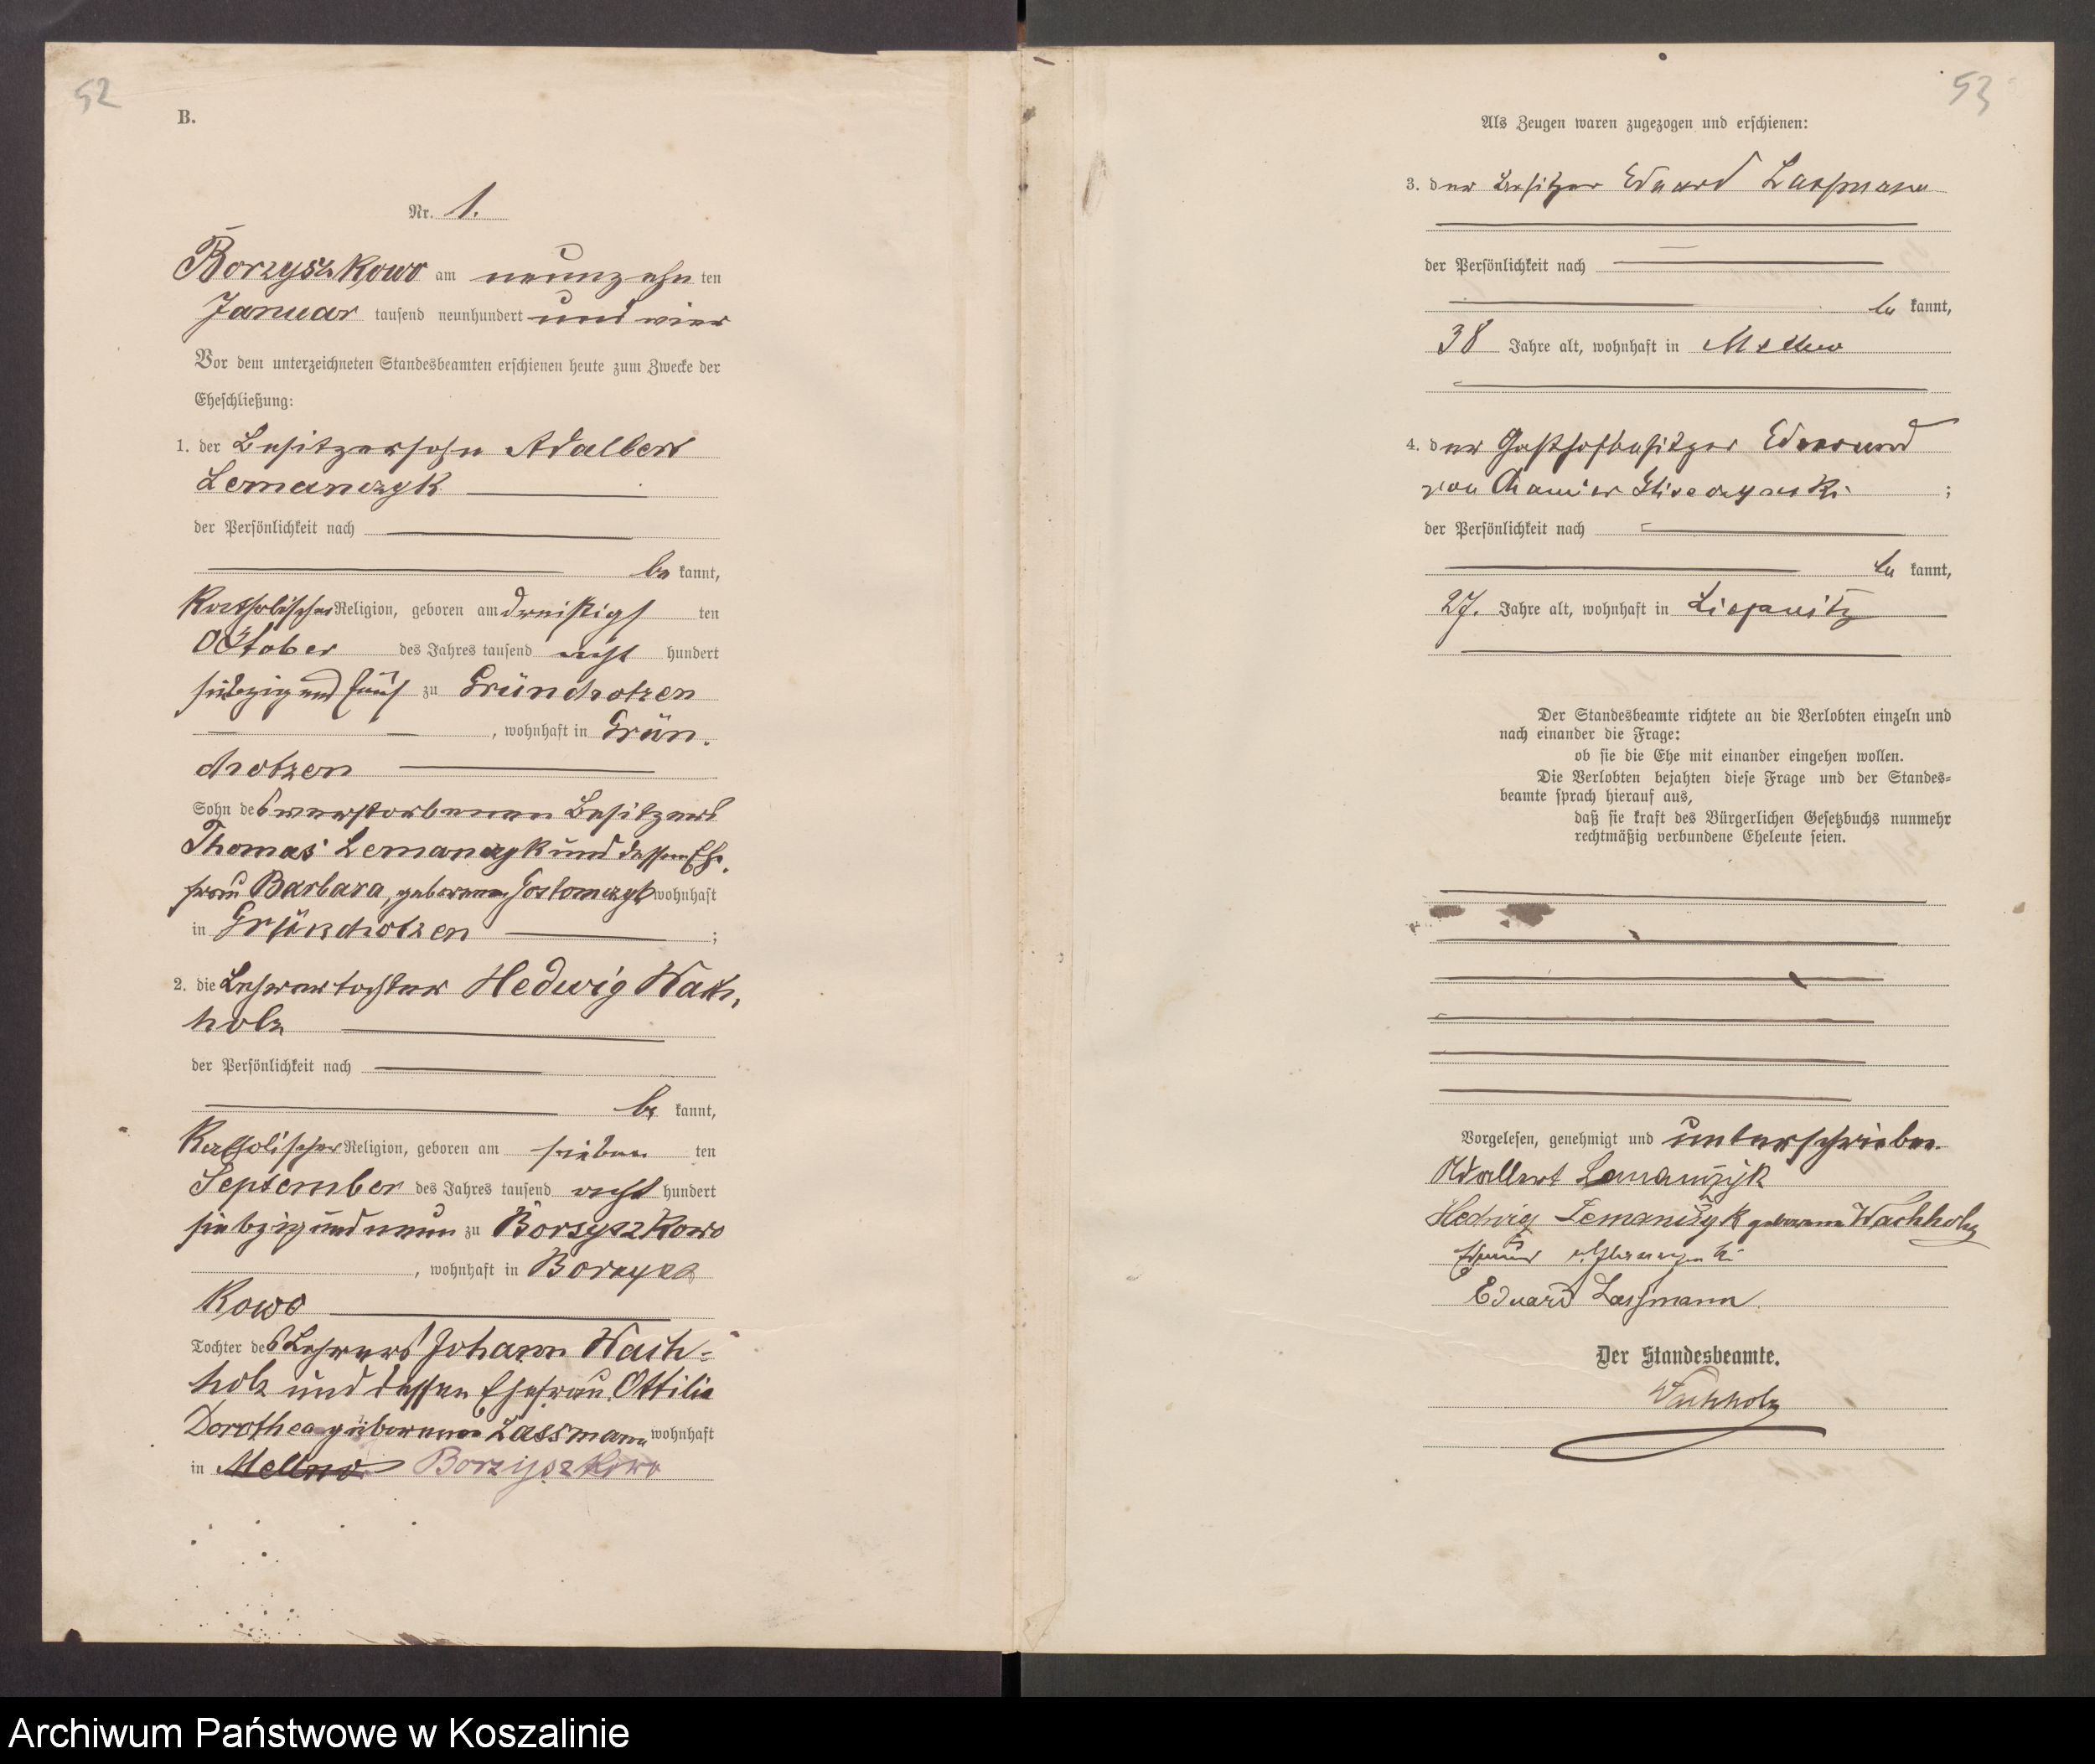 52
B.
Nr. 1.
Borzyszkowo am neunzehnten
Januar tausend neunhundert und vier
Vor dem unterzeichneten Standesbeamten erschienen heute zum Zwecke der
Eheschließung:
1. der Besitzersohn Adalbert
Lemanczyk
der Persönlichkeit nach
be kannt,
katholischer Religion, geboren am dreißigsten
Oktober des Jahres tausend acht hundert
siebzig und fünf zu Gründhotzen
, wohnhaft in Grün-
chotzen
Sohn des verstorbenen Besitzers
Thomas Lemanczyk und dessen Ehe-
frau Barbara, geborenen Gostomczyk wohnhaft
in Gründhotzen ;
2. die Lehrertochter Hedwig Wach-
holz
der Persönlichkeit nach
be kannt,
katholischer Religion, geboren am sieben ten
September des Jahres tausend acht hundert
siebzig und neun zu Borsyszkowo
, wohnhaft in Borzysz
kowo
Tochter des Lehrers Johann Wach-
holz und dessen Ehefrau Ottilie
Dorothea geborenen Lassmann wohnhaft
in Mellno Borzyszkowo
53
Als Zeugen waren zugezogen und erschienen:
3. der Besitzer Eduard Lassmann
der Persönlichkeit nach
be kannt,
38 Jahre alt, wohnhaft in
4. der Gasthofbesitzer Edmund
von Chamier Gliszczynski ;
der Persönlichkeit nach
be kannt,
27. Jahre alt, wohnhaft in
Der Standesbeamte richtete an die Verlobten einzeln und
nach einander die Frage:
ob sie die Ehe mit einander eingehen wollen.
Die Verlobten bejahten diese Frage und der Standes-
beamte sprach hierauf aus,
daß sie kraft des Bürgerlichen Gesetzbuchs nunmehr
rechtmäßig verbundene Eheleute seien.
Vorgelesen, genehmigt und unterschrieben.
Adalbert Lemańczyk
Hedwig Lemanczyk geborene Wachholz
Eduard Lassmann
Der Standesbeamte.
Wachholz
Archiwum Państwowe w Koszalinie